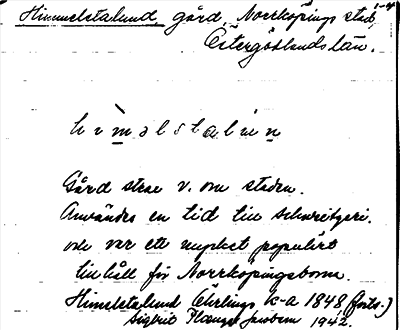 Himmelstalund gård, Norrköpings stad, 1-4
Östergötlands län.
Gård strax v. om staden.
Användes en tid till schweitzeri.
och var ett mycket populärt
tillhåll för Norrköpingsborna.
Himelstalund Öhrlings k-a 1848 (forts.)
Sigbrit Plænge Jacobson 1942.